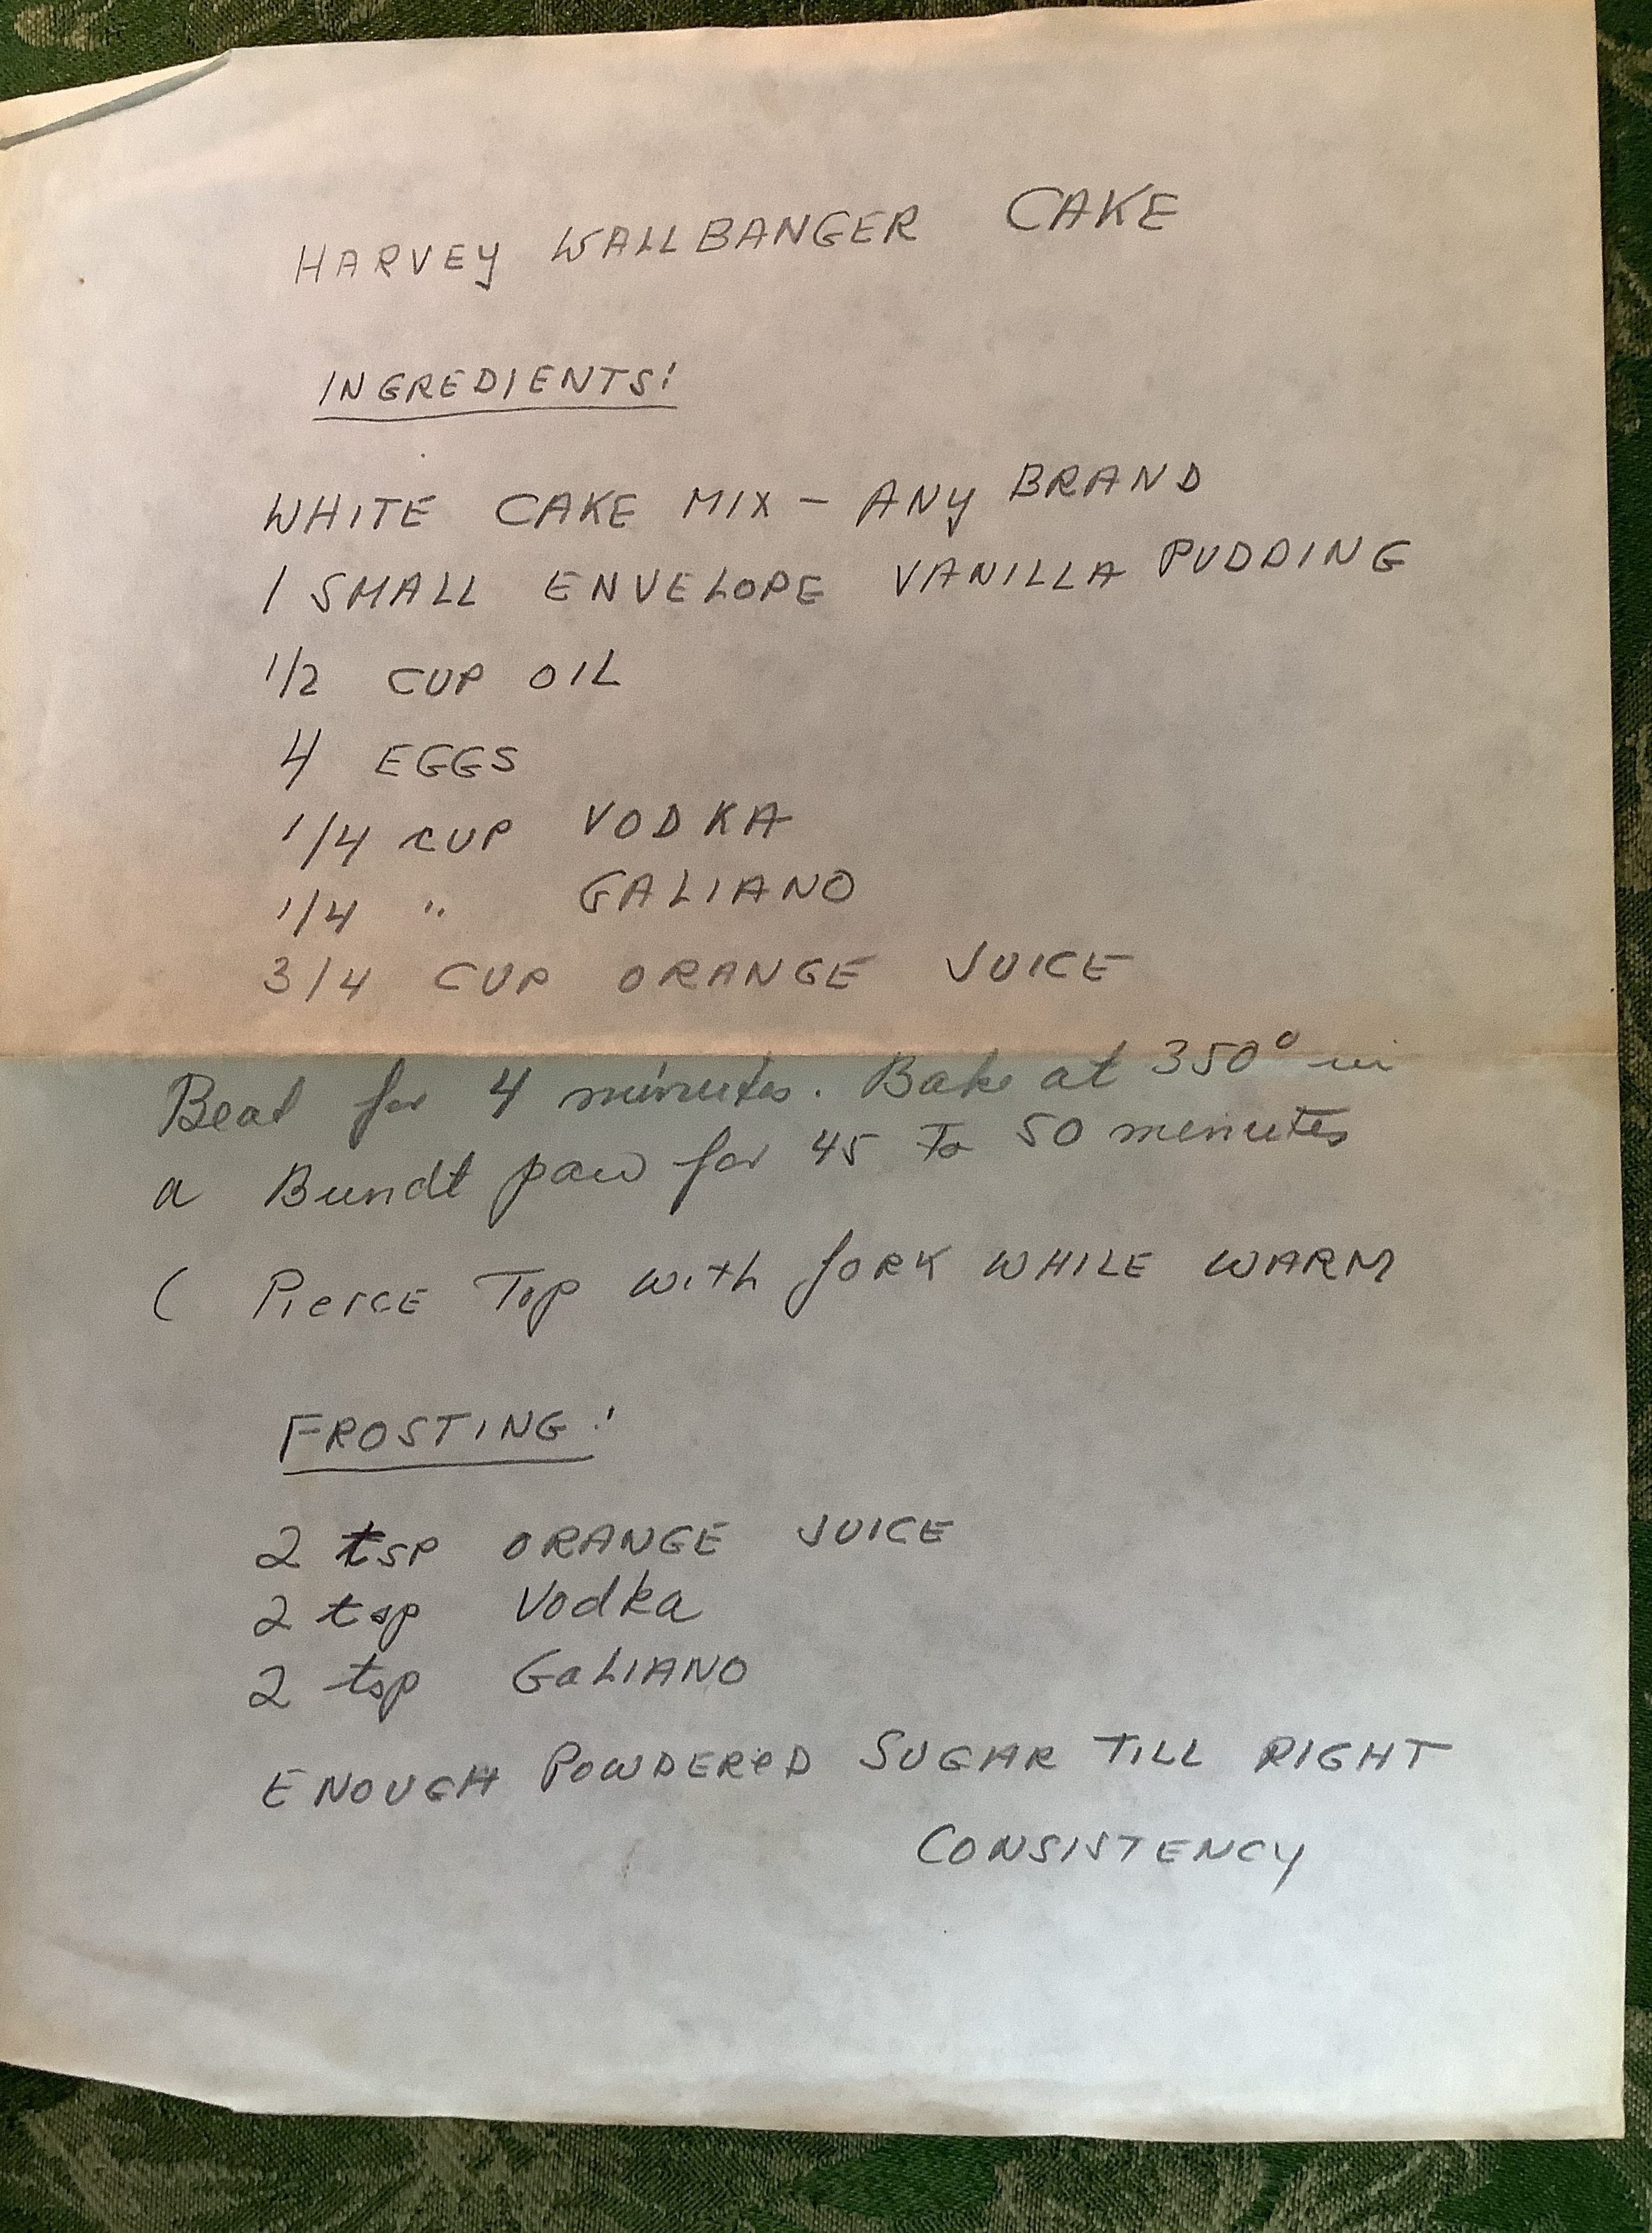 HARVEY WALLBANGER CAKE
INGREDIENTS:
WHITE CAKE MIX - ANY BRAND
1 SMALL ENVELOPE VANILLA PUDDING
1/2 CUP OIL
4 EGGS
1/4 CUP VODKA
1/4 " GALIANO
3/4 CUP ORANGE JUICE
Beat for 4 minutes. Bake at 350° in
a Bundt pan for 45 To 50 minutes
( PierCE Top with fORK WHILE WARM
FROSTING:
2 tsp ORANGE JUICE
2 tsp Vodka
2 tsp GaLIANO
ENOUGH POWDEReD SUGAR TILL RIGHT
CONSISTENCY